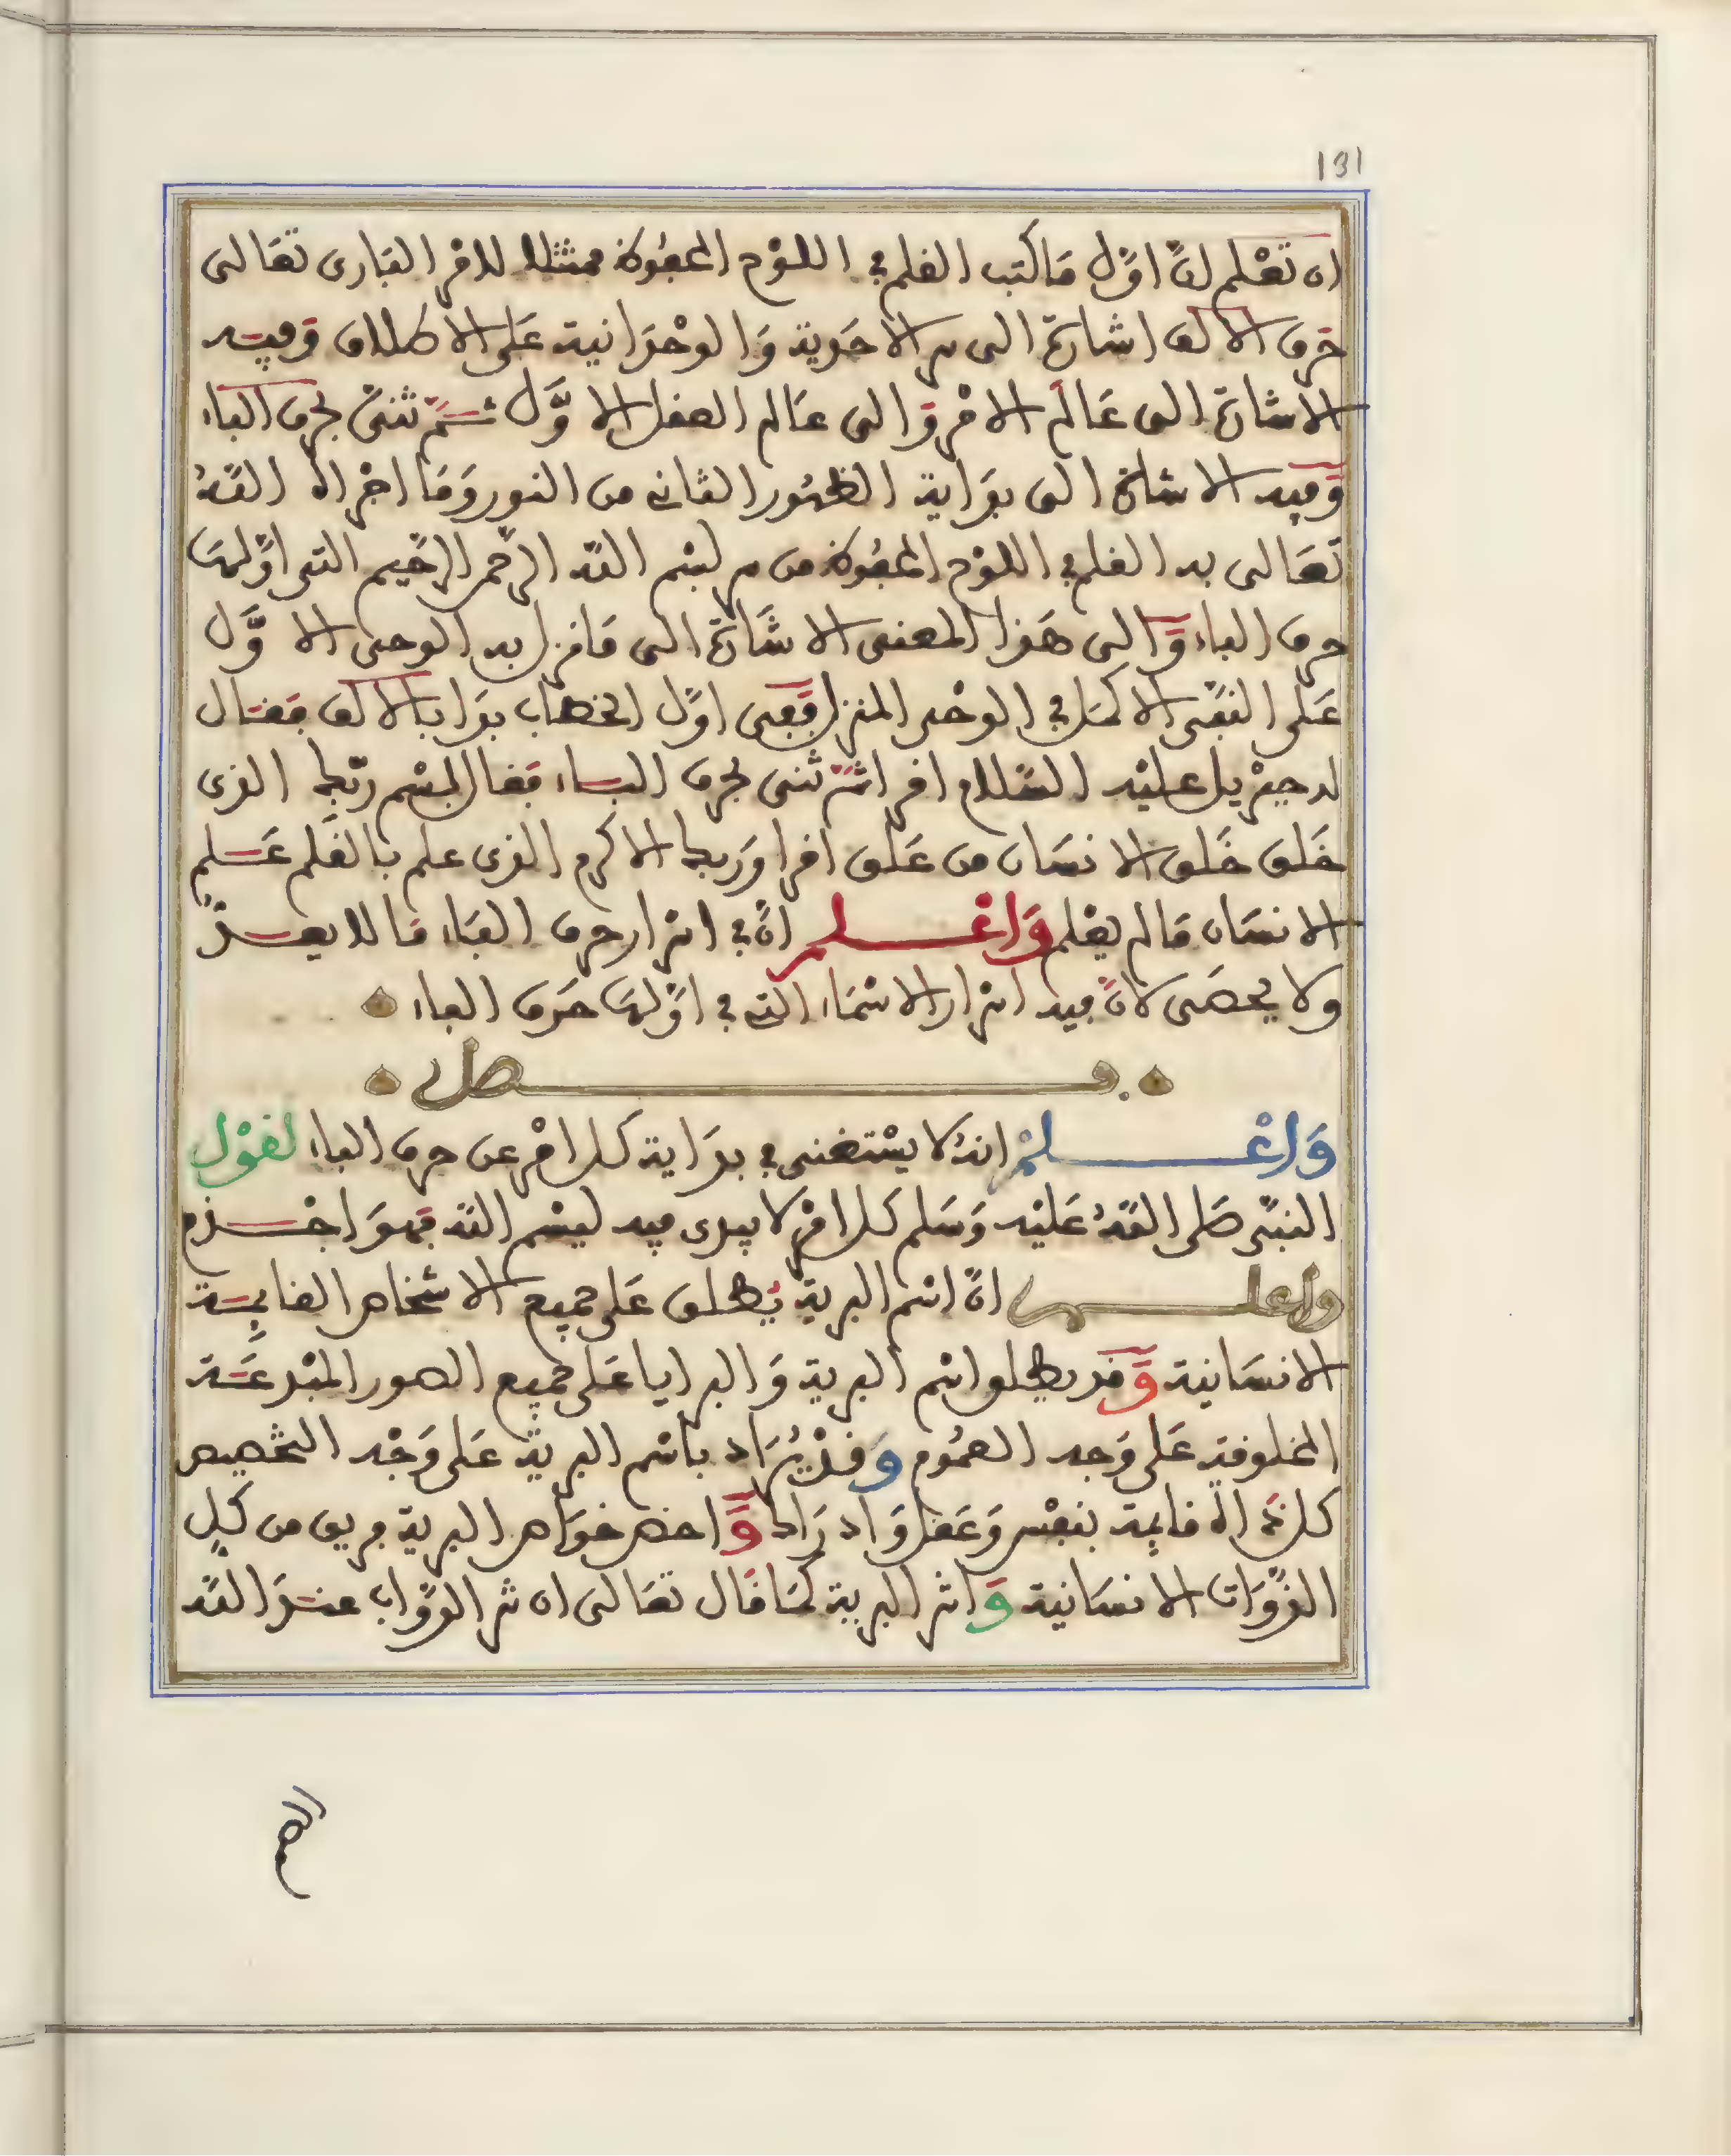 131
ان تعلم لانّ اوّل ما كتب القلم في اللوح المحفوظ ممتثلا لامر البارى تعالى
حرف الالف اشارة الى سر الاحدية والوحدانية على الاطلاق وفيه
الاشارة الى عالم الامر والى عالم العقل الاوّل ثمّ ثنّى بحرف الباء
وفيه الاشارة الى بداية الظهور الثانى من النور وما اجراه اللّه
تعالى به القلم في اللوح المحفوظ من سر بسم اللّه الرّحمن الرّحيم التى اوّلها
حرف الباء والى هذا المعنى الاشارة الى ما نزل به الوحى الاوّل
على النّبىّ الاكمل في الوحى المنزل ففى اوّل الخطاب بدا بالالف فقال
له جبريل عليه السّلام اقرا ثمّ ثنى بحرف الباء فقال باسم ربّك الذى
خلق خلق الانسان من علق اقرا وربك الاكرم الذى علم بالقلم علم
الانسان ما لم يعلم واعلم انّ في اسرار حرف الباء ما لا يعدّ
ولا يحصى لانّ فيه اسرار الاسماء التى في اوّلها حرف الباء
فصل
واعلم انهُ لا يستغنى في بداية كل امر عن حرف الباء لقول
النبىّ صلى اللّه عليه وسلم كل امر لا يبدى فيه ببسم اللّه فهو اجذم
واعلم انّ اسم البرية يطلق على جميع الاشخاص القايمة
الانسانية وقد يطلق اسم البرية والبرايا على جميع الصور المبدعة
المخلوقية على وجه العموم وقد يُراد باسم البرية على وجه التخصيص
كل ذات قايمة بنفس وعقل وادراك واخص خواص البرية فريق من كل
الذّوات الانسانية وشر البرية كما قال تعالى ان شر الدوّاب عند اللّه
الصم